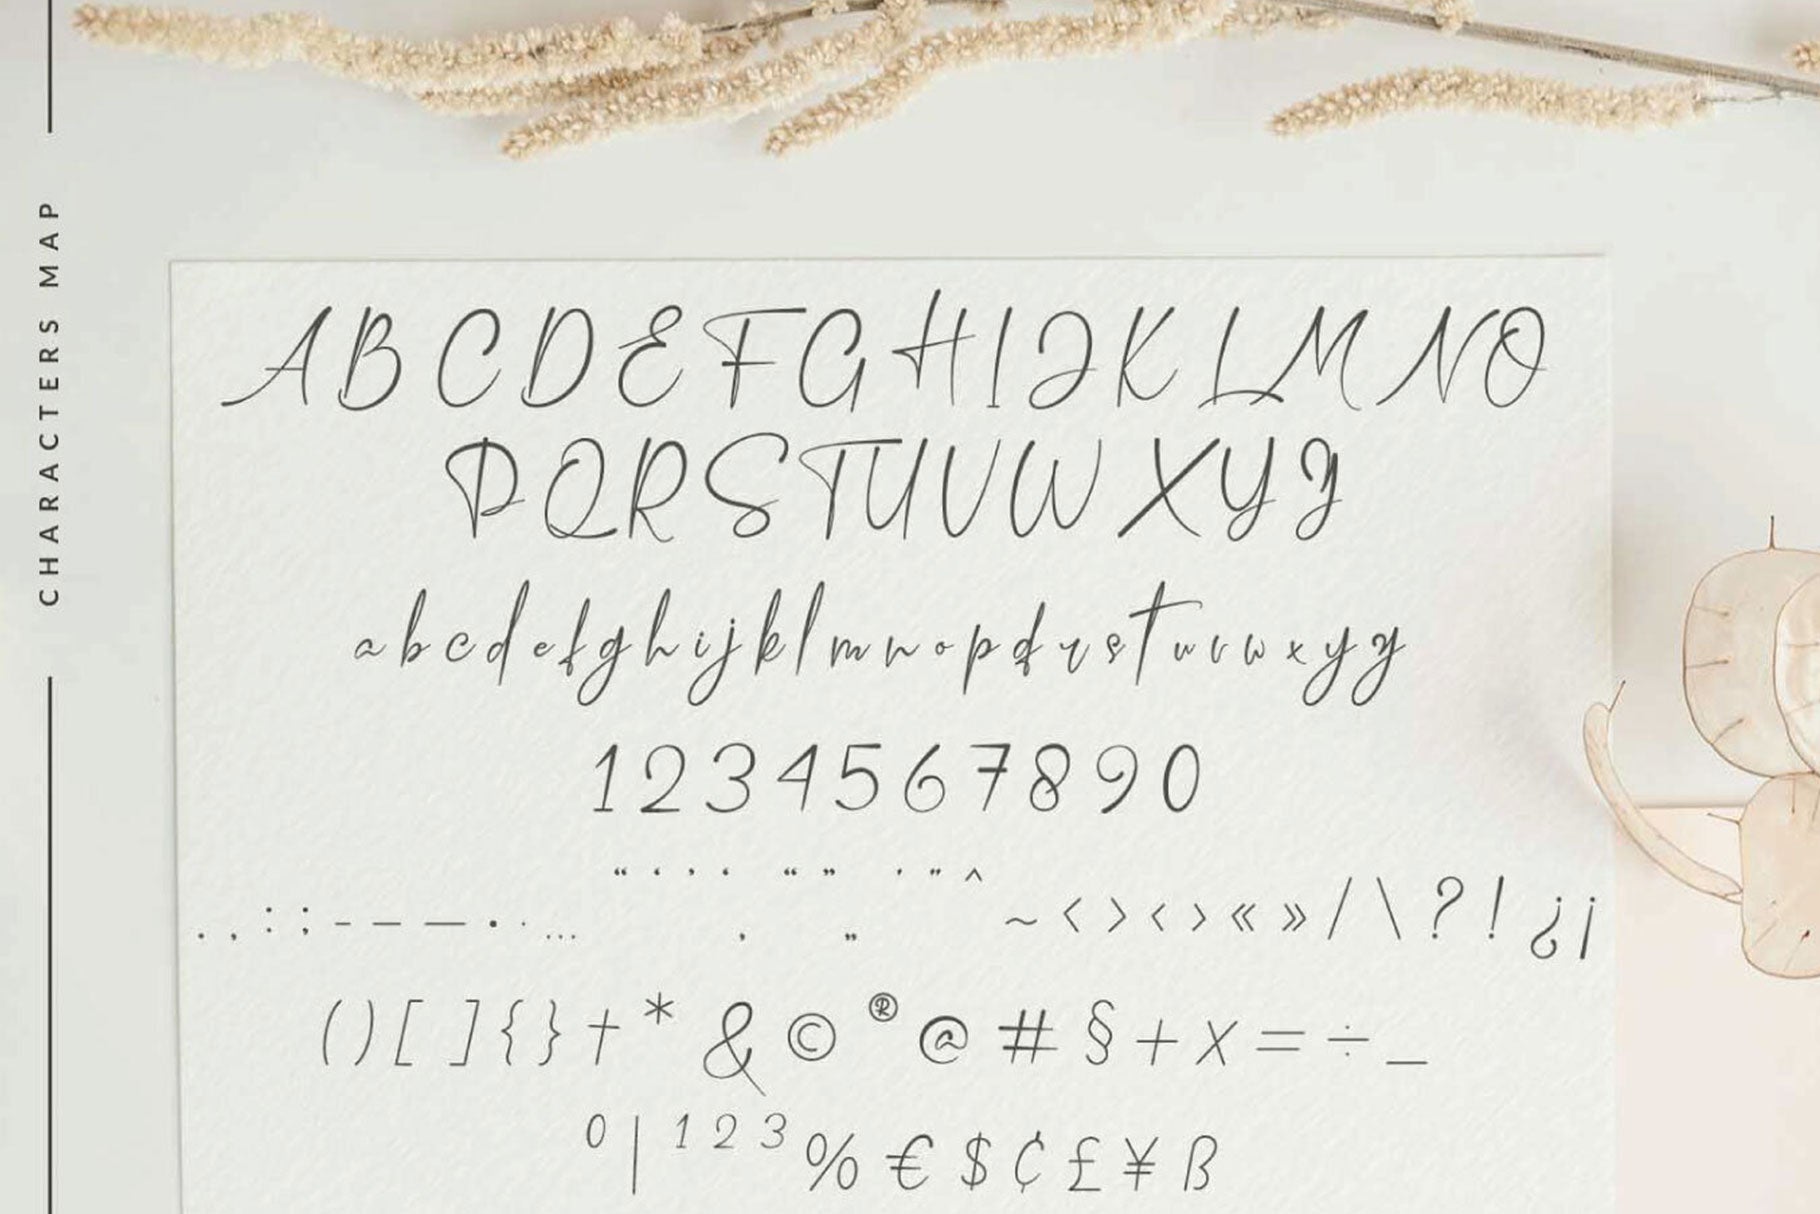 CHARACTERS MAP
A B C D E F G H I J K L M N O
P Q R S T U V W X Y Z
a b c d e f g h i j k l m n o p q r s t u v w x y z
1 2 3 4 5 6 7 8 9 0
“ ‘ ’ ‘ “ ” ' " ^
. , : ; - – — • · … ‚ „ ~ < > ‹ › « » / \ ? ! ¿ ¡
( ) [ ] { } † * & © ® @ # § + × = ÷ _
⁰ | ¹ ² ³ % € $ ¢ £ ¥ ß